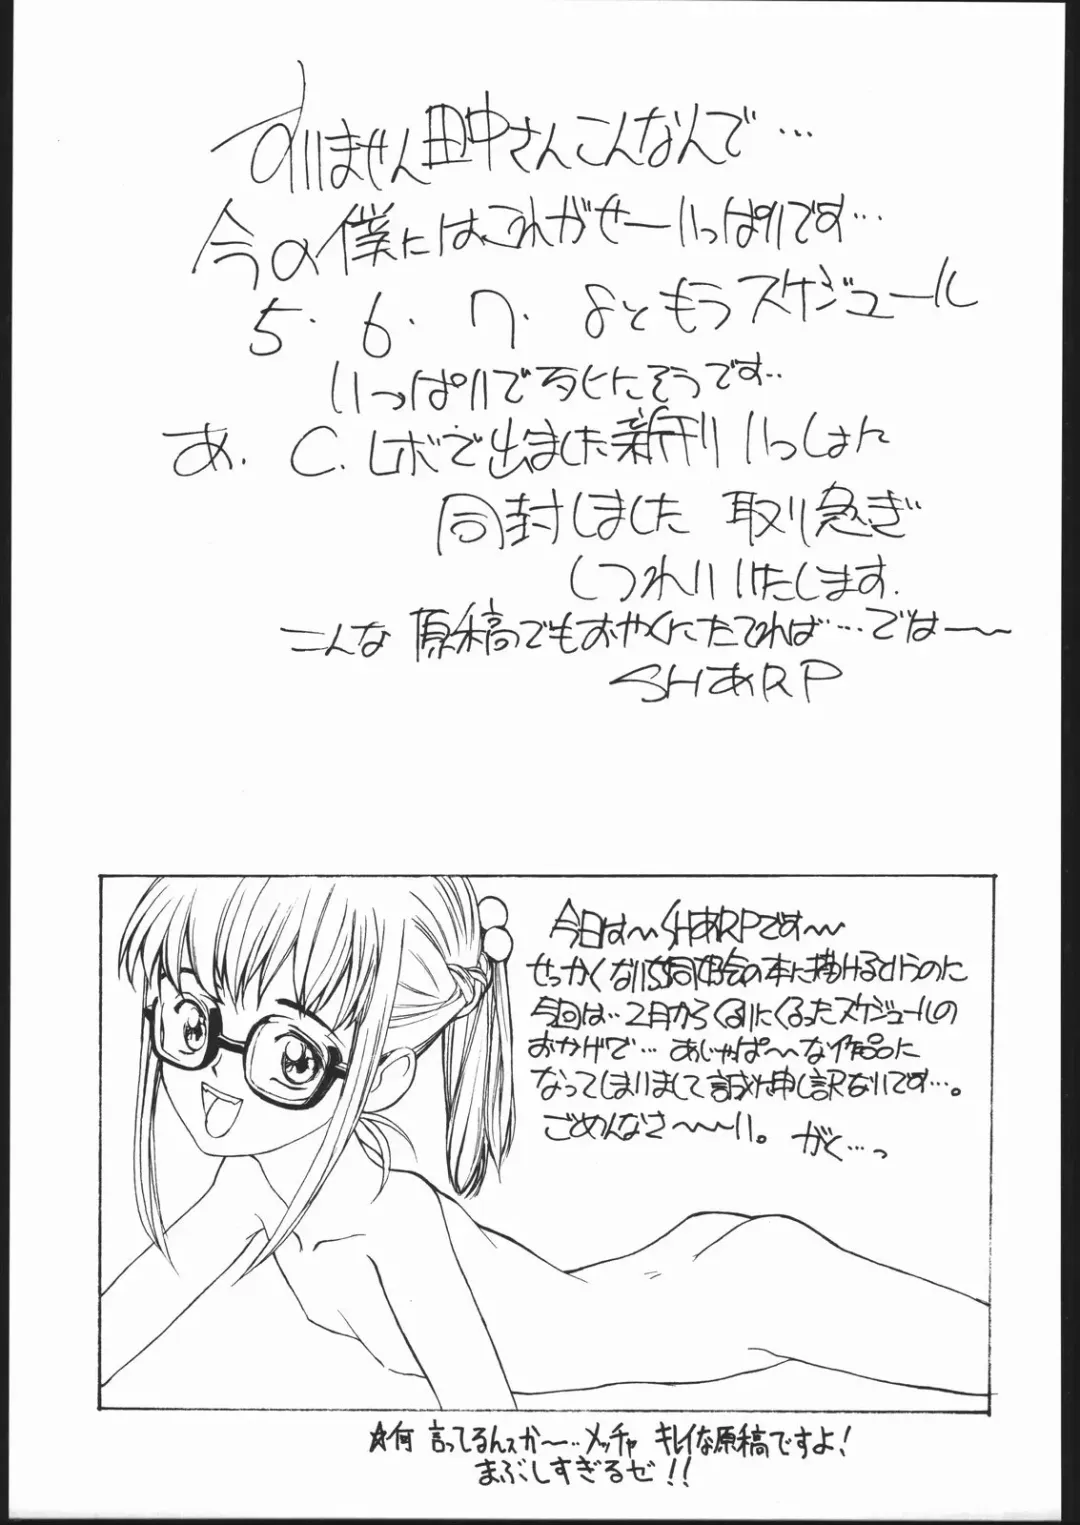 すいません田中さんこんなんで…
今の僕にはこれがせーいっぱいです…
5.6.7.8ともうスケジュール
いっぱいで死にそうです..
あ、C.レボで出ました新刊いっしょに
同封しました 取り急ぎ
しつれいいたします.
こんな原稿でもおやくにたてれば…では〜
SHあRP
今日は〜SHあRPです〜
せっかくない
の本に描けるというのに
今回は…2月からくるいにくるったスケジュールの
おかげで…あじゃぱ〜な作品に
なってしまいまして誠に申し訳ないです…。
ごめんなさ〜〜い。がく…っ
☆何言ってるんスか〜…メッチャ キレイな原稿ですよ!
まぶしすぎるゼ!!